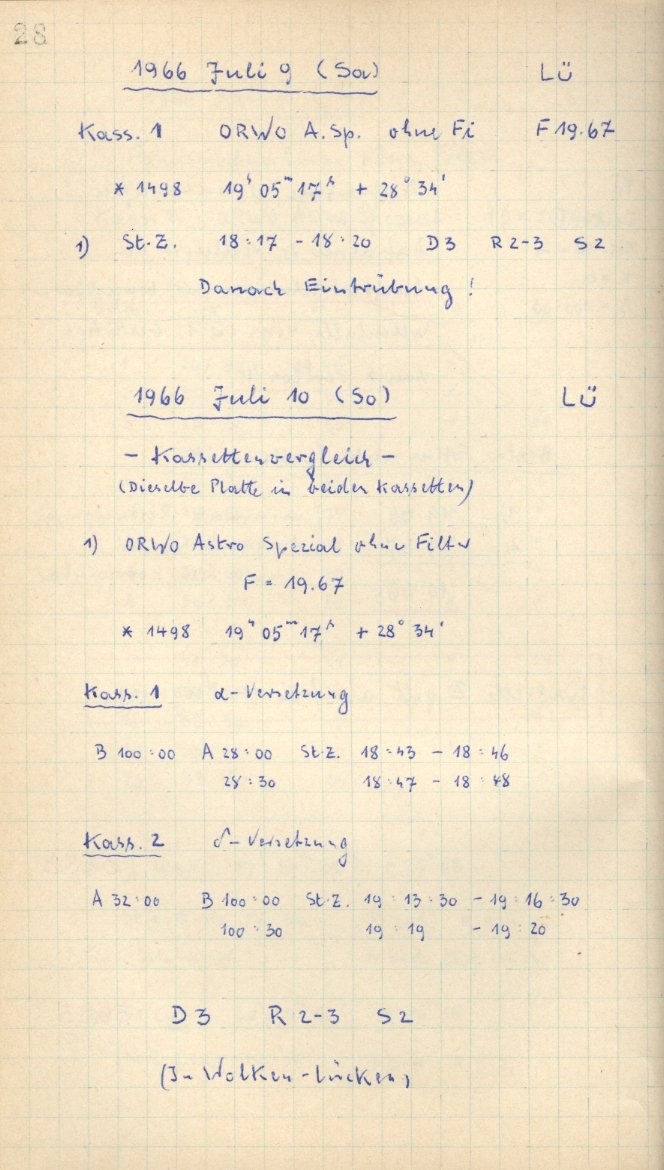 28
1966 Juli 9 (Sa) LÜ
Kass. 1 ORWO A.Sp. ohne Fi F 19.67
* 1498 19ʰ 05ᵐ 17ˢ + 28° 34'
1) St.Z. 18:17 - 18:20 D3 R2-3 S2
Danach Eintrübung!
1966 Juli 10 (So) LÜ
- Kassettenvergleich -
(Dieselbe Platte in beiden Kassetten)
1) ORWO Astro Spezial ohne Filter
F = 19.67
* 1498 19ʰ 05ᵐ 17ˢ + 28° 34'
Kass. 1 α-Versetzung
B 100:00 A 28:00 St.Z. 18:43 - 18:46
28:30 18:47 - 18:48
Kass. 2 δ-Versetzung
A 32:00 B 100:00 St.Z. 19:13:30 - 19:16:30
100:30 19:19 - 19:20
D3 R2-3 S2
(In Wolken-Lücken)